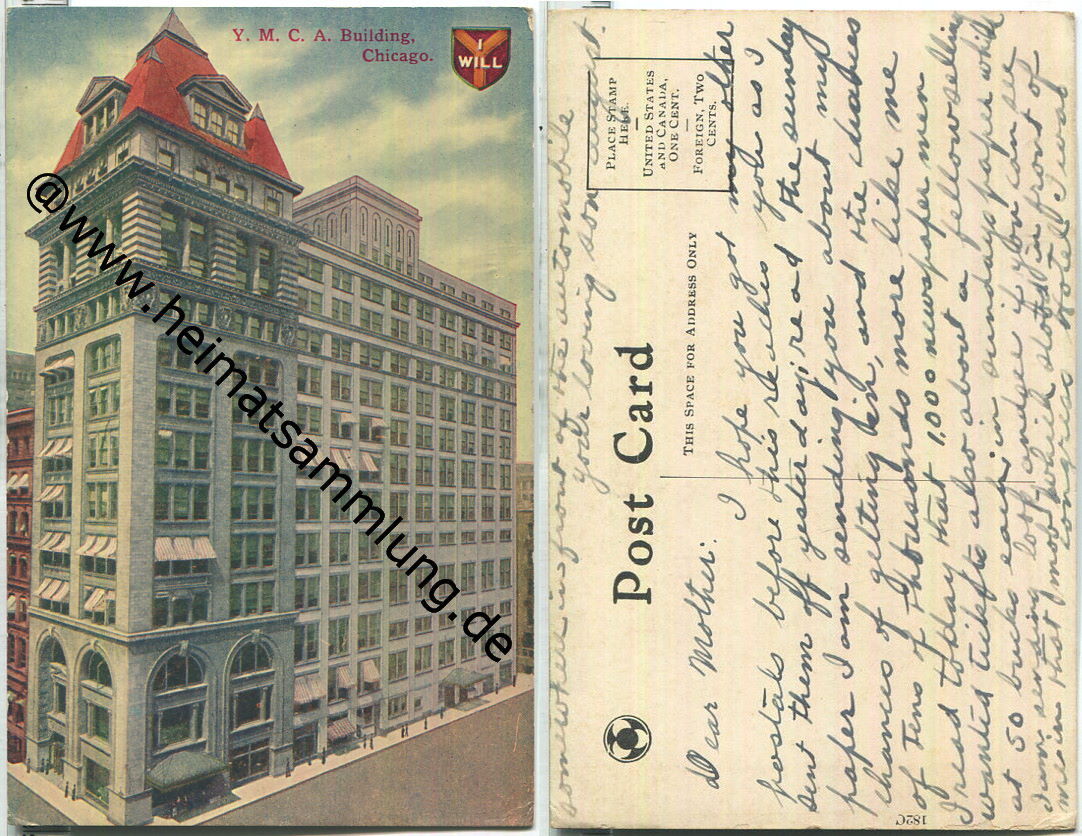 Y. M. C. A. Building,
Chicago.
I
WILL
@www.heimatsammlung.de
PLACE STAMP
HERE.
UNITED STATES
AND CANADA,
ONE CENT.
FOREIGN, TWO
CENTS.
THIS SPACE FOR ADDRESS ONLY
Post Card
182C
Dear Mother: I hope you got my letter
postals before this reaches you as I
sent them off yesterday, read the sunday
paper I am sending you about my
chances of getting in, and the chances
of tens of thousands more like me
I read today that 1,000 newspaper men
wanted also about a fellow selling
at 50 bucks each in sundays paper which
I am sending look and see if you can see
me in that mob which stood in front of
congress hotel I was
somewhere in front of the automobile
your loving son